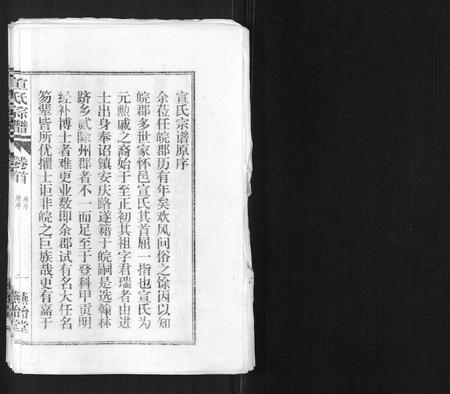 宣氏宗谱原序
余莅任皖郡历有年矣欢风问俗之馀因以知
皖郡多世家怀邑宣氏其首屈一指也宣氏为
元勲戚之裔始于至正初其祖字君瑞者由进
士出身奉诏镇安庆路遂籍于皖嗣是选翰林
跻乡贰除州郡者不一而足至于登科甲贡明
经补博士者难更业数即余郡试有名大任名
笏辈皆所优擢士讵非皖之巨族哉更有嘉于
宣氏宗譜
卷首
原序
一
燕怡堂